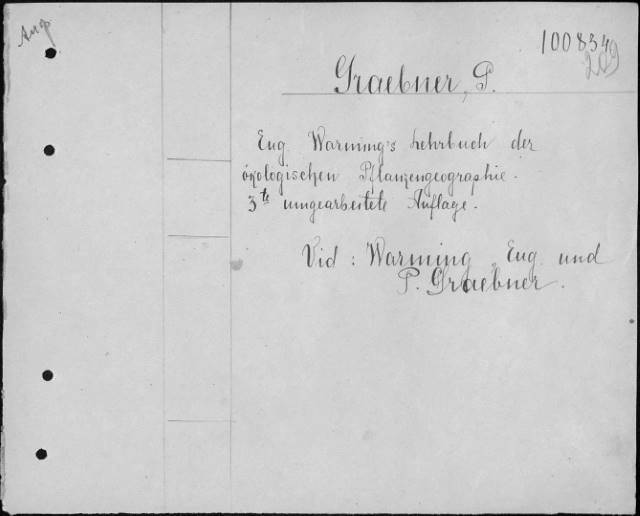 1008349
209
Graebner, P.
Eug Warming's Lehrbuch der
ökologischen Pflanzengeographie.
3te umgearbeitete Auflage.
Vid: Warming, Eug. und
P. Graebner.